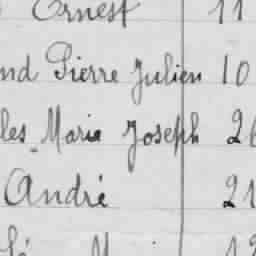 Ernest 11
nd Pierre Julien 10
les Marie Joseph 26
André 21